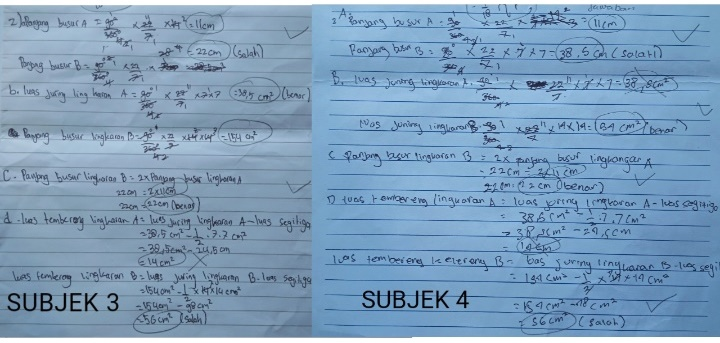 2) Panjang busur A = 90° × 22 × 14² = 11 cm
360° 7
= 22 cm (salah)
Panjang busur B = 90° × 22 ×
360° 7
b. luas juring lingkaran A = 90° × 22 × 7 × 7 = 38,5 cm² (benar)
360° 7
Panjang busur lingkaran B = 90° × 22 × 14 × 14 = 154 cm²
360° 7
C. Panjang busur lingkaran B = 2 × Panjang busur lingkaran A
22 cm = 2 × 11 cm
22 cm = 22 cm (benar)
d. luas tembereng lingkaran A = luas juring lingkaran A - luas segitiga
= 38,5 cm² - 1/2 . 7 . 7 cm²
= 38,5 cm² - 24,5 cm
= 14 cm²
luas tembereng lingkaran B = luas juring lingkaran B - luas segitiga
= 154 cm² - 1/2 × 14 × 14 cm²
= 154 cm² - 98 cm²
= 56 cm² (salah)
SUBJEK 3
2 A. Panjang busur A = 90 × 22 × = 11 cm
360 7
Panjang busur B = 90° × 22 × 7 × 7 = 38,5 cm (salah)
7
B. luas juring lingkaran A 90° × 22 × 7 × 7 = 38,5 cm²
360 7
luas juring lingkaran B 90 × 22 × 14 × 14 = 154 cm² benar)
360
C panjang busur lingkaran B = 2 × panjang busur lingkaran A
= 22 cm = 2 × 11 cm
22 cm = 22 cm (benar)
D luas tembereng lingkaran A = luas juring lingkaran A - luas segitiga
= 38,5 cm² - 1 . 7 . 7 cm²
= 38,5 cm² - 24,5 cm
= 14 cm
luas tembereng B = luas juring lingkaran B - luas segi
= 154 cm² - 1 × 14 × 14 cm²
2
= 154 cm² - 98 cm²
= 56 cm² (salah)
SUBJEK 4